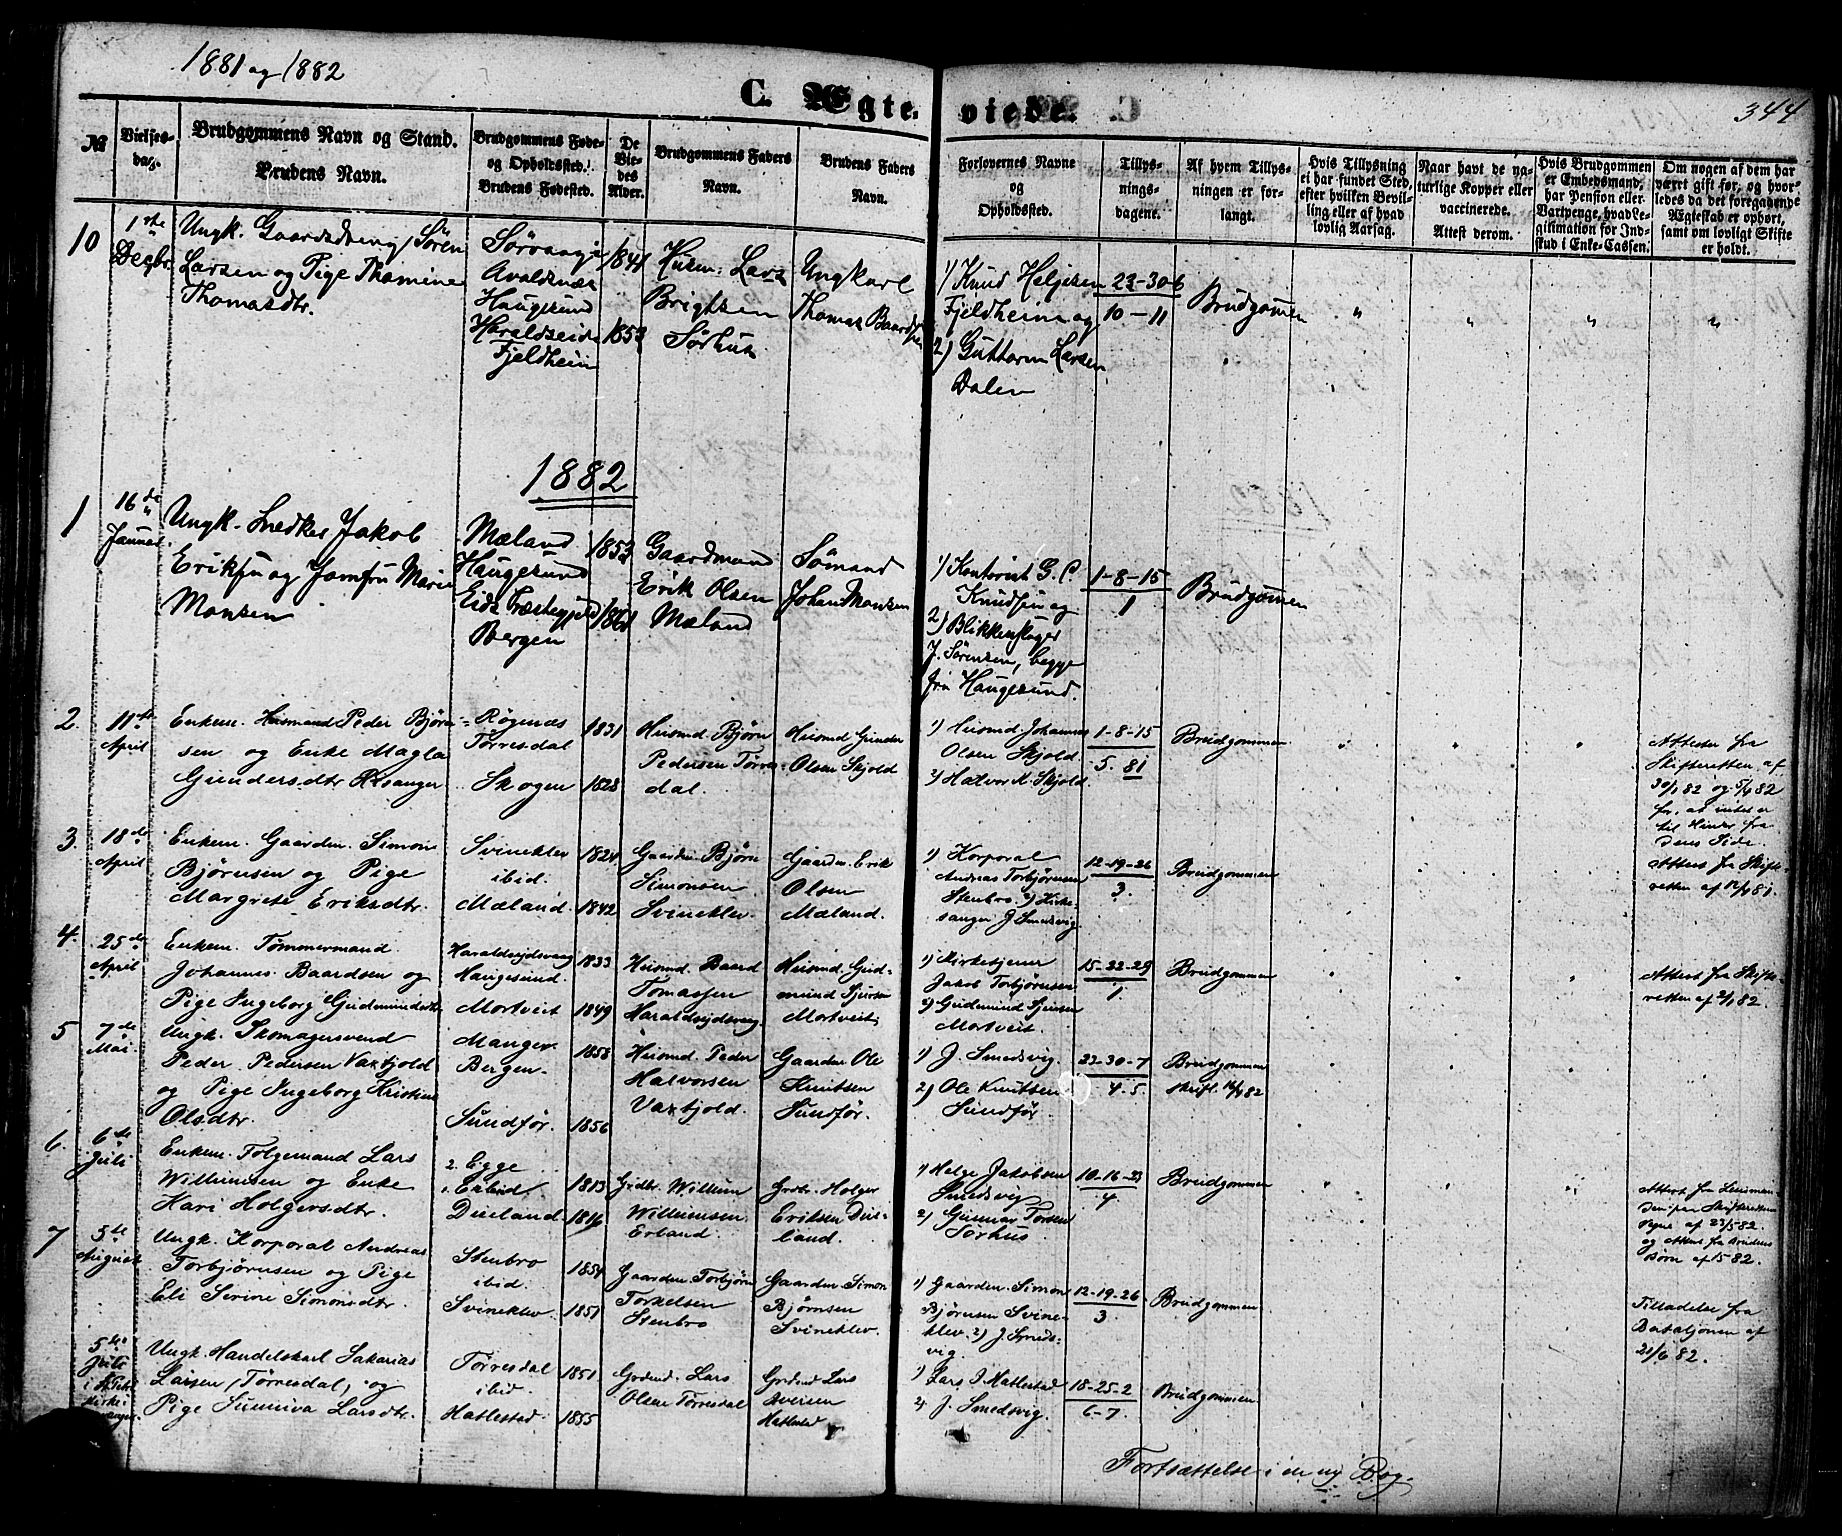 1881 og 1882
C. Ægte- viede.
344
№
Vielses-
dag.
Brudgommens Navn og Stand.
Brudens Navn.
Brudgommens Føde-
og Opholdssted.
Brudens Fødested.
De
Vie-
des
Alder.
Brudgommens Faders
Navn.
Brudens Faders
Navn.
Forlovernes Navne
og
Opholdssted.
Tillys-
nings-
dagene.
Af hvem Tillys-
ningen er for-
langt.
Hvis Tillysning
ei har fundet Sted,
efter hvilken Bevil-
ling eller af hvad
lovlig Aarsag.
Naar havt de na-
turlige Kopper eller
vaccinerede.
Attest derom.
Hvis Brudgommen
er Embedsmand,
har Pension eller
Vartpenge, hvad Le-
gitimation for Ind-
skud i Enke-Cassen.
Om nogen af dem har
været gift før, og hvor-
ledes da det foregaaende
Ægteskab er ophørt,
samt om lovligt Skifte
er holdt.
10
1ste
Decbr.
Ungk. Gaardsdreng Søren
Larsen og Pige Thomine
Thomasdtr.
Avaldsnæs
Haugesund
Haraldseid
Fjeldheim
1841
1853
Husm. Lars
Brigtsen
Sørhus
Ungkarl
Thomas Baardsen
1) Knud Heljesen
Fjeldheim og
2) Guttorm Larsen
Dalen
23-30-6
10-11
Brudgommen
" " " "
1882
1
16de
Januar.
Ungk. Snedker Jakob
Eriksen og Jomfru Marie
Monsen
Mæland
Haugesund
Eids Præstegjeld
Bergen
1853
1861
Gaardmand
Erik Olsen
Mæland
Sømand
Johan Monsen
1) Kontorist G. C.
Knudsen og
2) Blikkenslager
J. Sørensen, begge
fra Haugesund.
1-8-15
1
Brudgommen
2.
11te
April
Enkem. Husmand Peder Bjørn-
sen og Enke Magla
Gundersdtr
Røgenæs
Tørresdal
Skogen
1831
1828
Husmd Bjørn
Pedersen Tørres-
dal.
Husmd Gunder
Olsen Skjold
1) Husmd Johannes
Olsen Skjold
2) Halvor K. Skjold
1-8-15
5. 81
Brudgommen
" " "
Attester fra
Skifteretten af
30/1 82 og 5/4 82
for, at intet er
til Hinder fra
Dens Side.
3.
18de
April
Enkem. Gaardm. Simon
Bjørnsen og Pige
Margrete Eriksdtr.
Svineklev
ibid.
Mæland.
1824
1842
Gaardm. Bjørn
Simonsen
Svineklev
Gaardm. Erik
Olsen
Mæland.
1) Korporal
Andreas Torbjørnsen
Stenbro. 2) Kirke-
sanger J. Smedsvig
12-19-26
3.
Brudgommen
" " "
Attest fra Skift-
retten af 12/4 81.
4.
25de
April
Enkem. Tømmermand
Johannes Baardsen og
Pige Ingeborg Gudmundsdtr
Haraldseidsvaag
Haugesund
Mortveit
1833
1849
Husmd. Baard
Tomassen
Haraldseidsvaag.
Husmd. Gud-
mund Sjursen
Mortveit
1) Kirketjener
Jakob Torbjørnsen
2) Gudmund Sjursen
Mortveit.
15-22-29
1.
Brudgommen
" " "
Attest fra Skift-
retten af 2/1 82.
5
7de
Mai
Ungk. Skomagersvend
Peder Pedersen Vaxfjold
og Pige Ingeborg Kristine
Olsdtr.
Manger
Bergen
Sundfør.
1858
1856
Husmd. Peder
Halvorsen
Vaxfjold.
Gaardm. Ole
Knutsen
Sundfør.
1) J. Smedsvig.
2) Ole Knutsen
Sundfør
23-30-7
4-5.
Brudgommen
skriftl. 14/4 82
" " "
6.
6te
Juli
Enkem. Følgemand Lars
Willumsen og Enke
Kari Holgersdtr.
2. Egge
1. Erland.
Dueland
1813
1816
Grdbr. Willum
Willumsen
Erland.
Grdbr. Holger
Eriksen Due-
land.
1) Helge Jakobsen
Smedsvig
2) Gunnar Torsen
Sørhus
10-16-23
4
Brudgommen
" " "
Attest fra Lensman-
den paa Skifterettens
Vegne af 23/5 82.
og Attest fra Brudens
Børn af 15 82.
7
5te
August
Ungk. Korporal Andreas
Torbjørnsen og Pige
Eli Serine Simonsdtr.
Stenbro
ibid.
Svineklev
1854
1857
Gaardm. Torbjørn
Torkelsen
Stenbro
Gaardm. Simon
Bjørnsen
Svineklev.
1) Gaardm. Simon
Bjørnsen Svine-
klev. 2) J. Smeds-
vig.
12-19-26
3.
Brudgommen
Tilladelse fra
Bataljonen af
21/6 82.
5te
Juli
Ungk. Handelskarl Sakarias
Larsen, Tørresdal, og
Pige Sunniva Larsdtr.
Tørresdal
ibid.
Hatlestad.
1851
1855
Grdmd. Lars
Olsen Tørresdal
Grdmd Lars
Iversen
Hatlestad
1) Lars I. Hatlestad
2) J. Smedsvig.
18-25-2
6-7.
Brudgommen
Fortsættelse i de ny Bog.